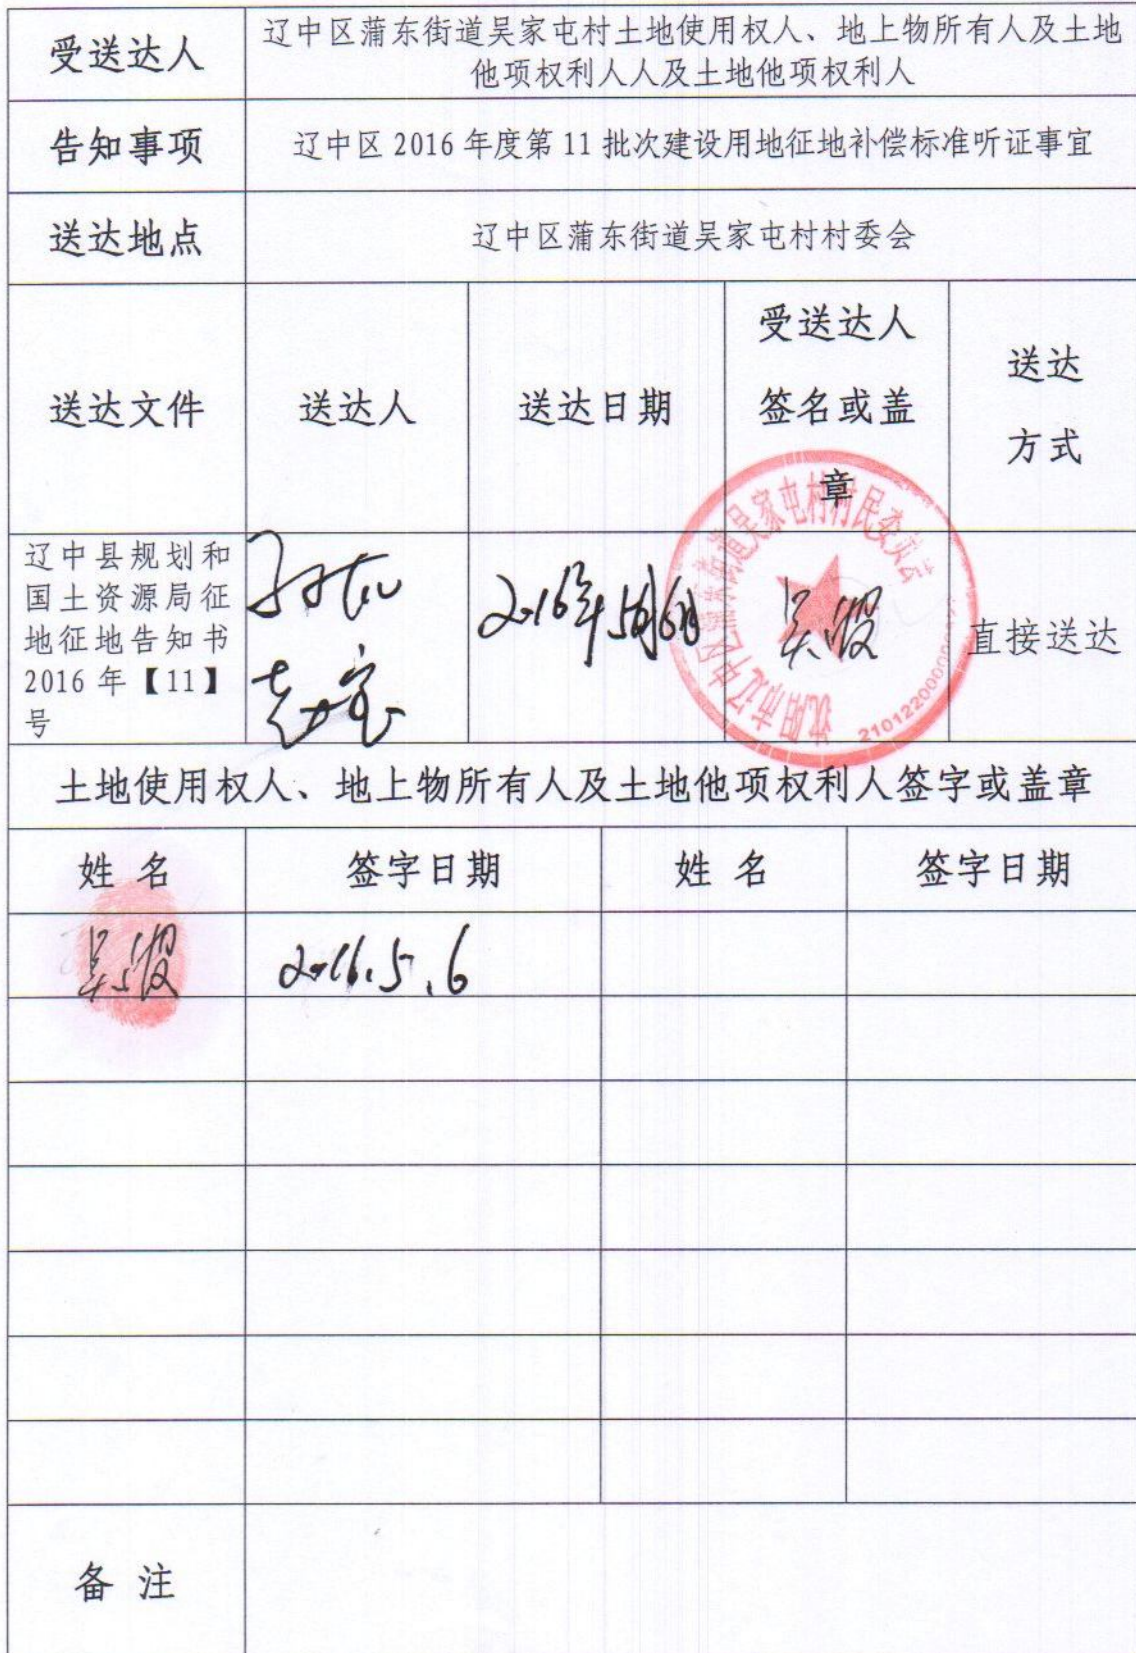 受送达人
辽中区蒲东街道吴家屯村土地使用权人、地上物所有人及土地
他项权利人人及土地他项权利人
告知事项
辽中区 2016 年度第 11 批次建设用地征地补偿标准听证事宜
送达地点
辽中区蒲东街道吴家屯村村委会
送达文件
送达人
送达日期
受送达人
签名或盖
章
送达
方式
辽中县规划和
国土资源局征
地征地告知书
2016 年【11】
号
2016年5月6日
沈阳市辽中区蒲东街道吴家屯村村民委员会
直接送达
土地使用权人、地上物所有人及土地他项权利人签字或盖章
姓 名
签字日期
姓 名
签字日期
2016.5.6
备 注